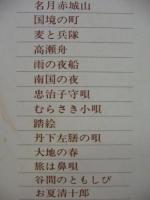 名月赤城山
国境の町
麦と兵隊
高瀬舟
雨の夜船
南国の夜
忠治子守唄
むらさき小唄
踏絵
丹下左膳の唄
大地の春
旅は鼻唄
谷間のともしび
お夏清十郎